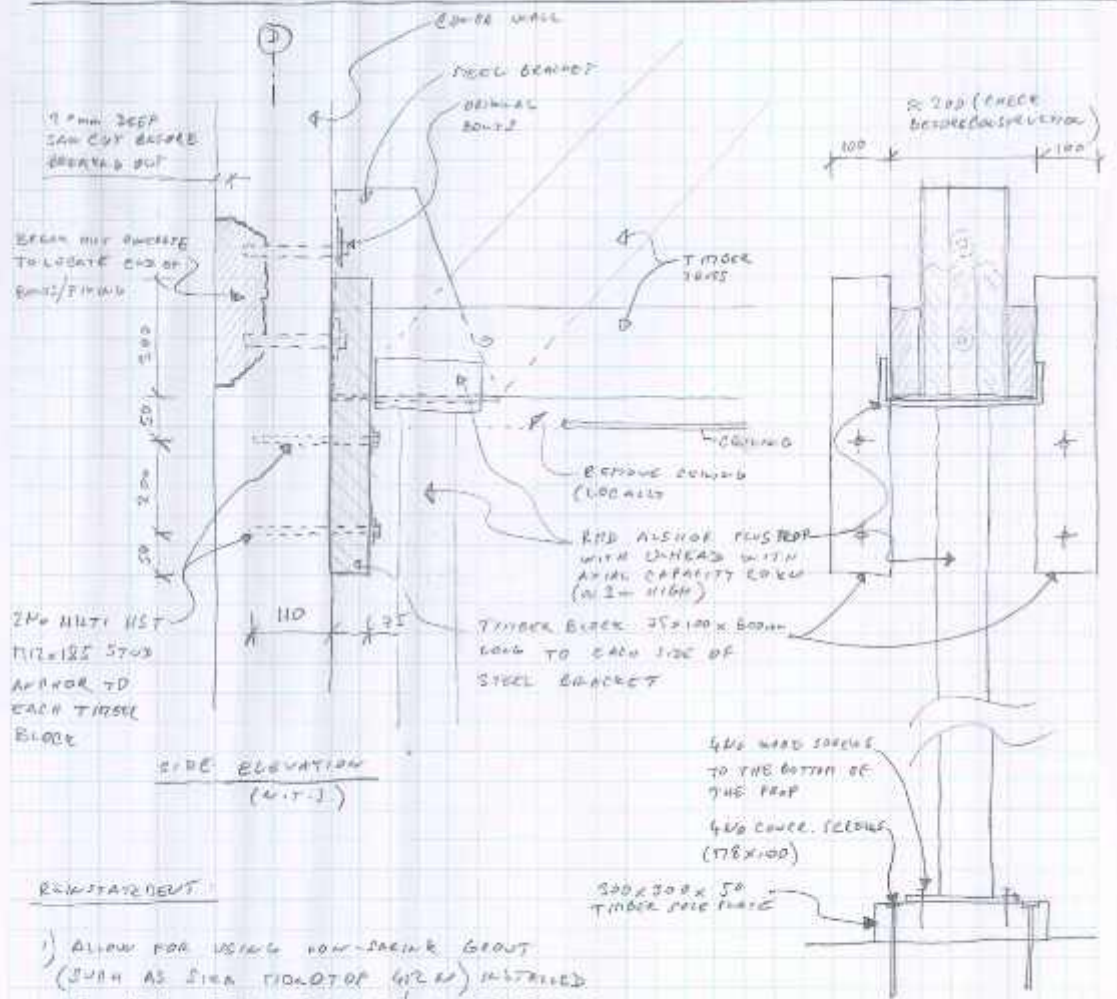 2
CONCR WALL
STEEL BRACKET
ORIGINAL
BOLTS
20mm DEEP
SAW CUT BEFORE
BREAKING OUT
BREAK OUT CONCRETE
TO LOCATE END OF
BOLTS/FIXING
≈ 200 (CHECK
BEFORE CONSTRUCTION)
100
100
TIMBER
TRUSS
300
50
200
50
CEILING
REMOVE CEILING
(LOCALLY
RMD ALSHOR PLUS PROP
WITH U-HEAD WITH
AXIAL CAPACITY
HIGH)
2No HILTI HST
M12x185 STUD
ANCHOR TO
EACH TIMBER
BLOCK
110
75
TIMBER BLOCK 75x100x600mm
LONG TO EACH SIDE OF
STEEL BRACKET
SIDE ELEVATION
(N.T.S)
4No WOOD SCREWS
TO THE BOTTOM OF
THE PROP
4No CONCR. SCREWS
(M8x100)
300x300x50
TIMBER SOLE PLATE
REINSTATEMENT:
1) ALLOW FOR USING NON-SHRINK GROUT
(SUCH AS SIKA MONOTOP 412 N) INSTALLED